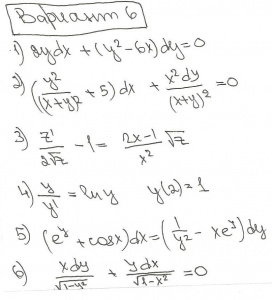 Вариант 6
1) 2ydx + (y² - 6x)dy = 0
2) (y²/(x+y)² + 5)dx + x²dy/(x+y)² = 0
3) z'/2√z - 1 = 2x-1/x² √z
4) y/y' = ln y y(2) = 1
5) (e^y + cosx)dx = (1/y² - xe^y)dy
6) xdy/√1-y² + ydx/√1-x² = 0